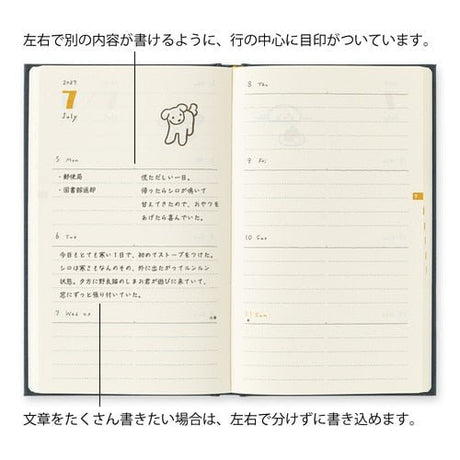 左右で別の内容が書けるように、行の中心に目印がついています。
7
July
5 Mon
・郵便局
・図書館返却
慌ただしい一日。
帰ったらシロが鳴いて
甘えてきたので、おやつを
あげたら喜んでいた。
6 Tue
今日もとても寒い1日で、初めてストーブをつけた。
シロは寒さもなんのその、外に出たがってルンルン
状態。夕方に野良猫のしまお君が遊びに来ていて、
窓にずっと張り付いていた。
7 Wed
8 Thu
9 Fri
10 Sat
11 Sun
7
文章をたくさん書きたい場合は、左右で分けずに書き込めます。